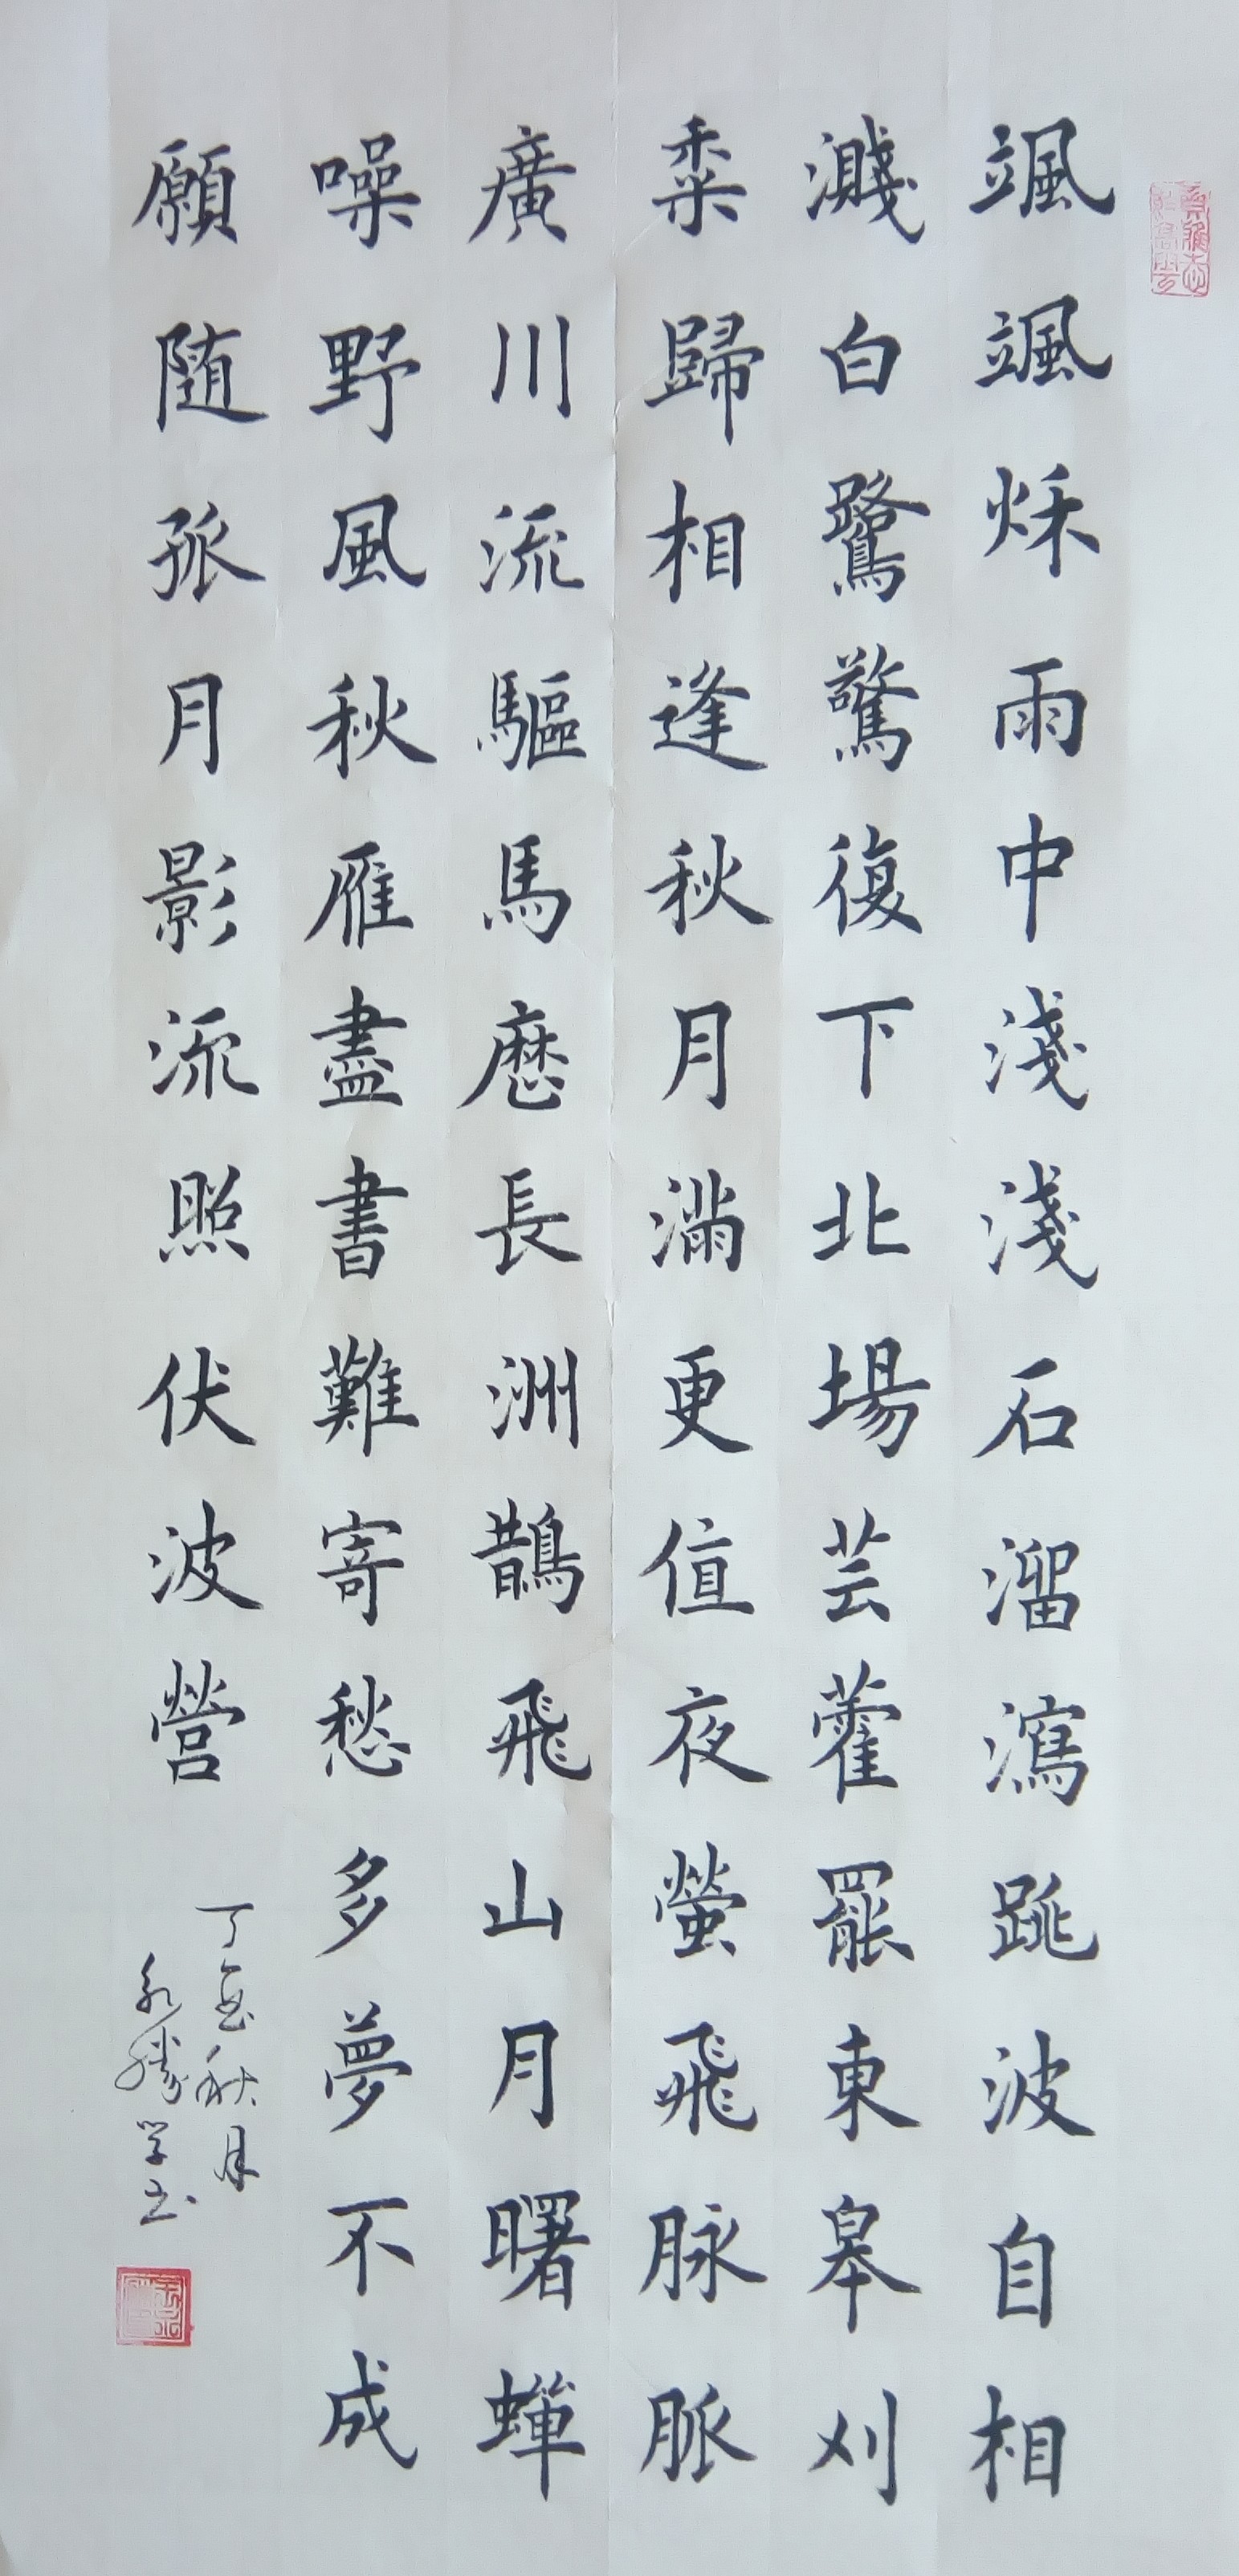 颯颯秌雨中淺淺石溜瀉跳波自相
濺白鷺驚復下北場芸藿罷東皋刈
黍歸相逢秋月滿更值夜螢飛脉脈
廣川流驅馬歷長洲鵲飛山月曙蟬
噪野風秋雁盡書難寄愁多夢不成
願随孤月影流照伏波營
丁酉秋月
永勝学书